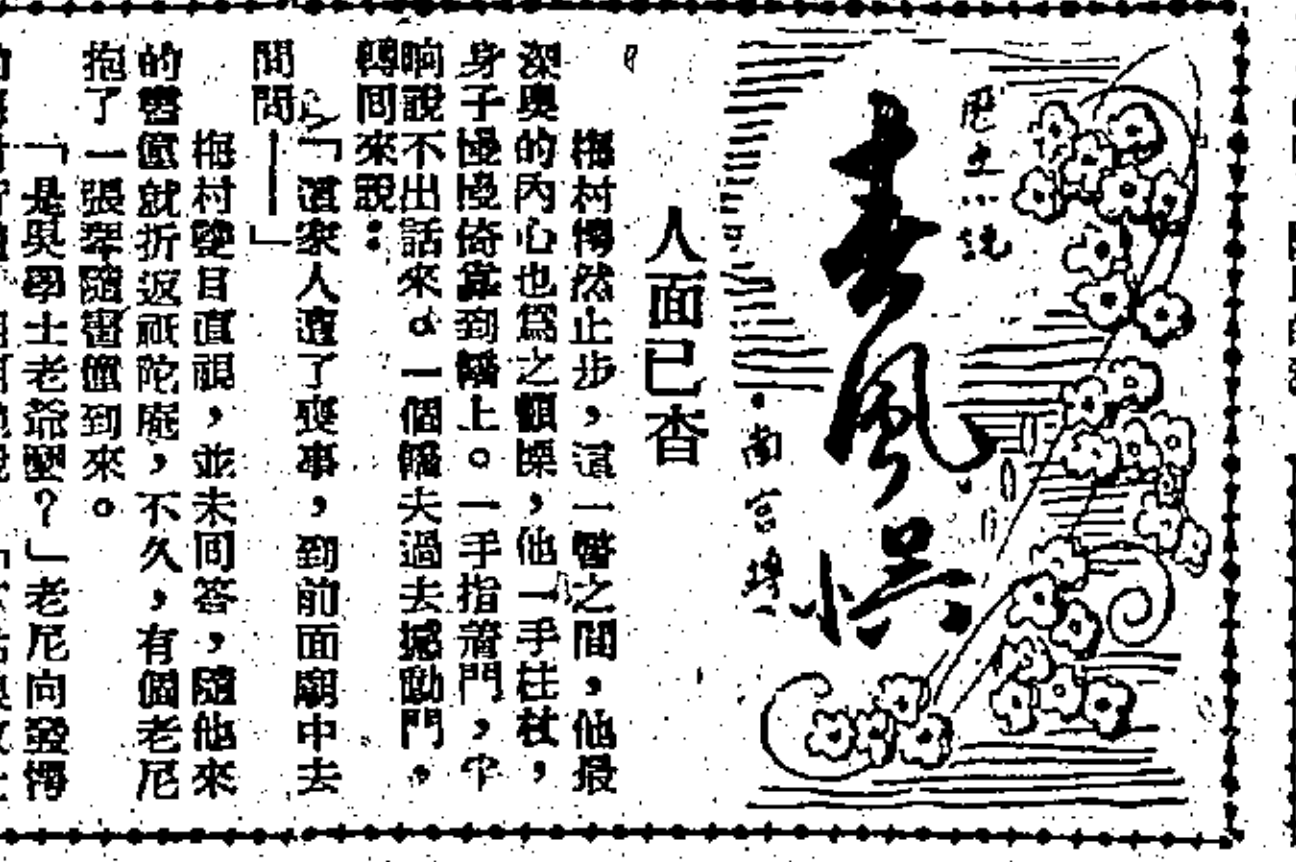 歷史小說
春風誤
·南宮搏·
人面已杳
梅村愕然止步，這一瞥之間，他最
深奧的內心也爲之顫慄，他一手拄杖，
身子慢慢倚靠到轎上。一手指着門，半
晌說不出話來。一個轎夫過去撼動門，
轉回來說：
「這家人遭了喪事，到前面廟中去
問問——」
梅村雙目直視，並未回答，隨他來
的書僮就折返祇陀庵，不久，有個老尼
抱了一張琴隨書僮到來。
「是吳學士老爺麼？」老尼向發愕